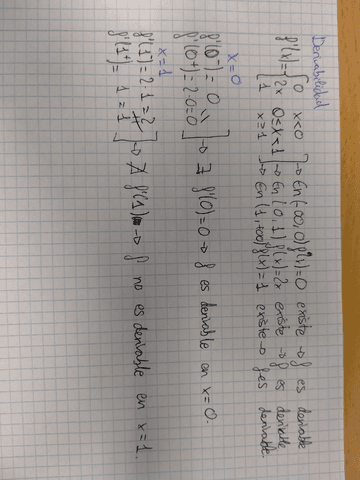 Derivabilidad
f'(x) = { 0 x<0 → En (-∞,0) f'(x)=0 existe → f es derivable
2x 0≤x<1 → En (0,1) f'(x)=2x existe → f es derivable
1 x≥1 → En (1,+∞) f'(x)=1 existe → f es derivable.
x=0
f'(0⁻) = 0
f'(0⁺) = 2·0=0 ] → ∃ f'(0)=0 → f es derivable en x=0.
x=1
f'(1⁻)=2·1=2
≠
f'(1⁺)= 1 = 1 ] → ∄ f'(1) → f no es derivable en x=1.